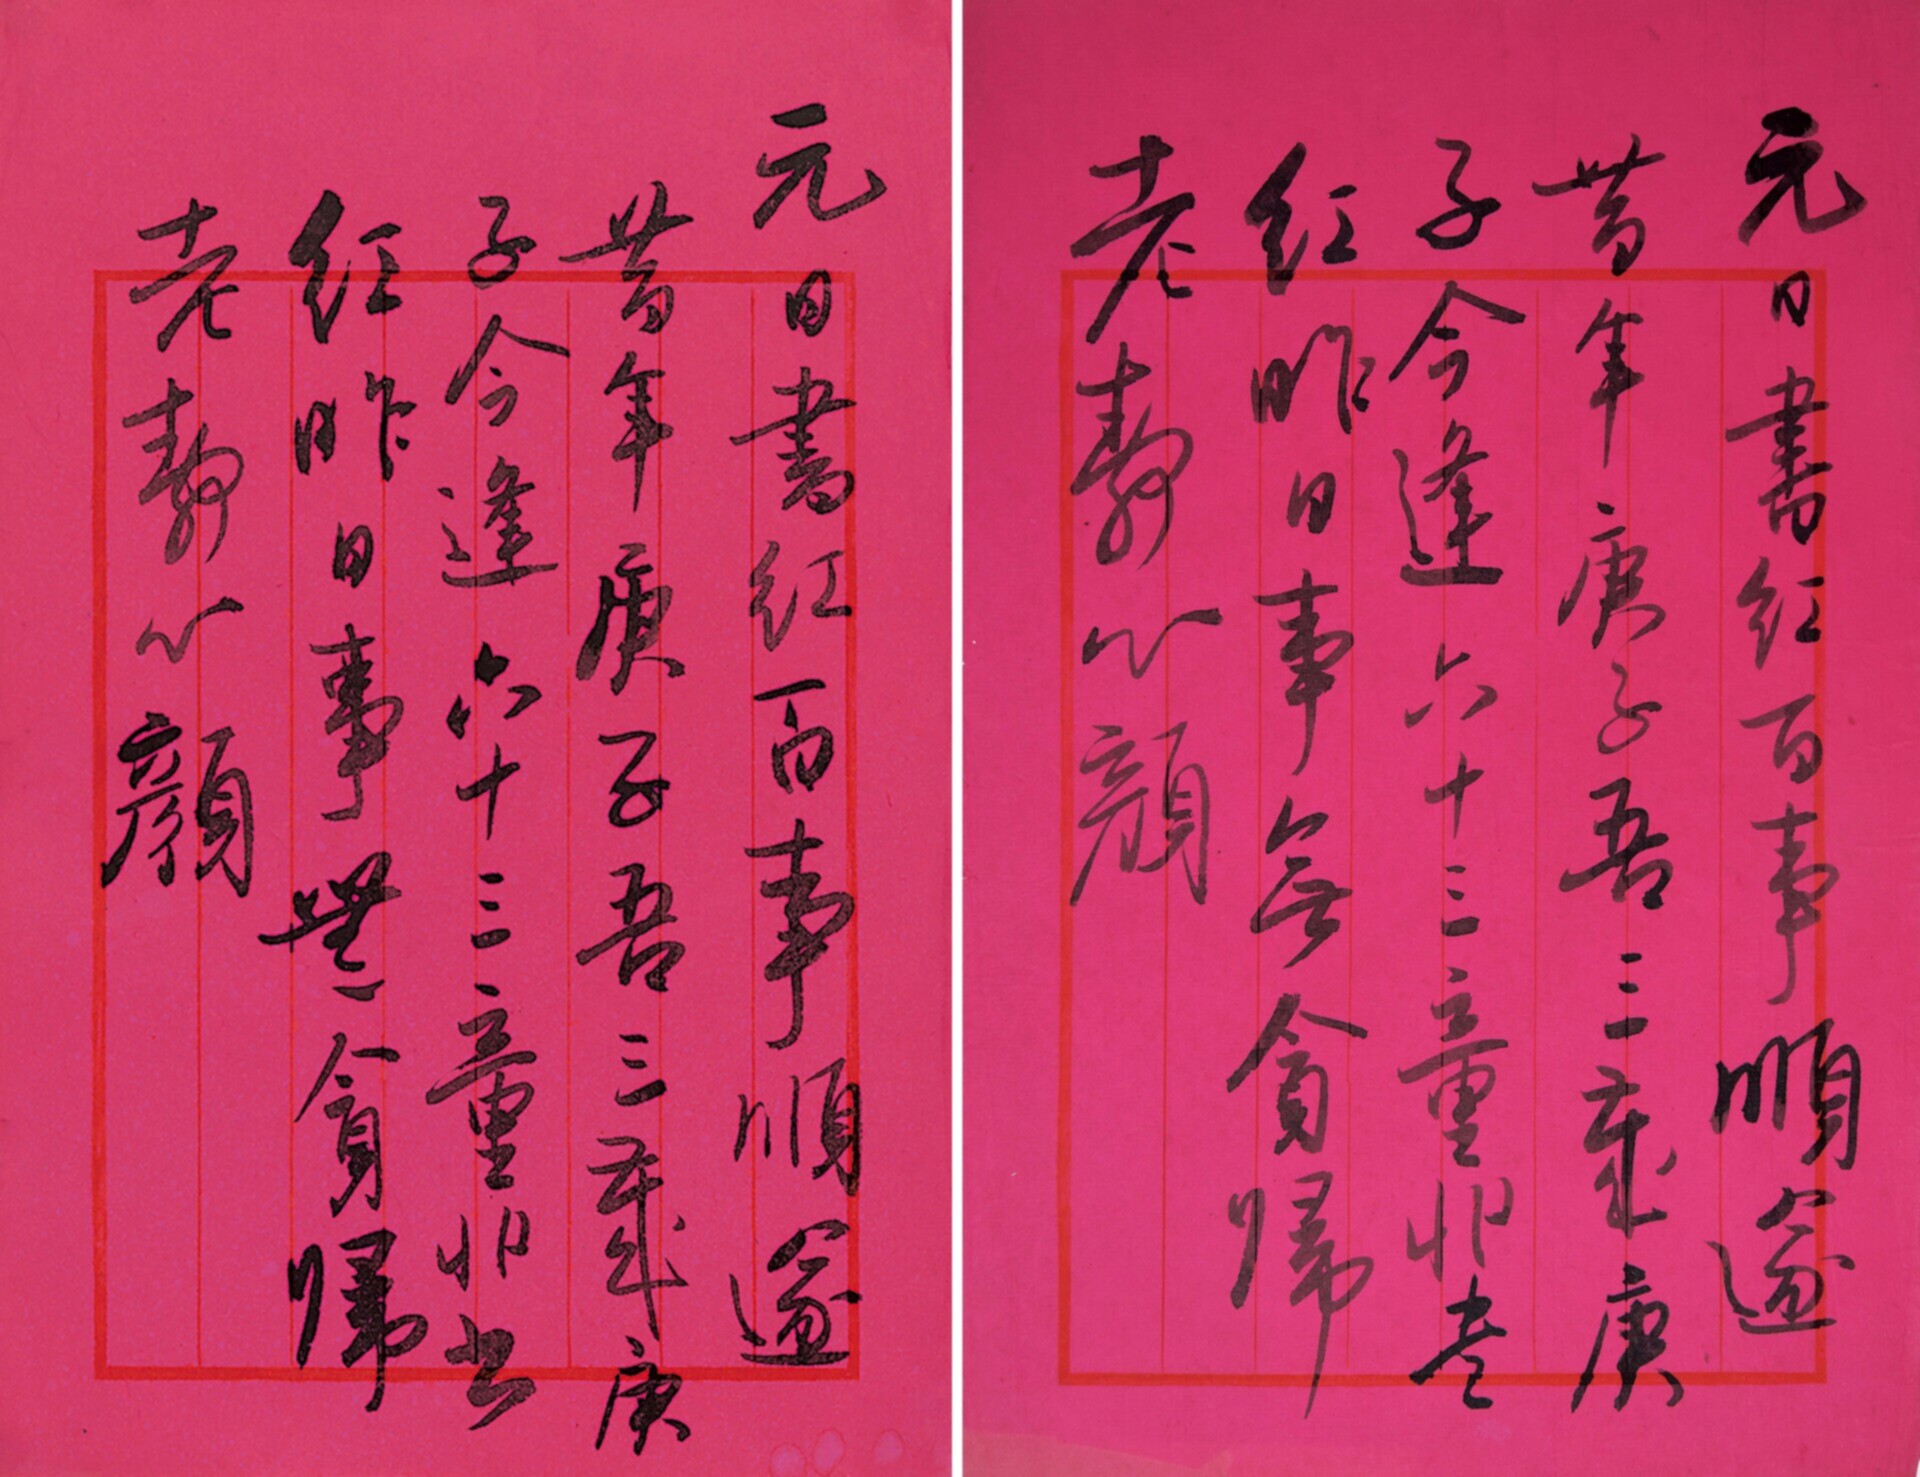 元日書紅百事順遂
昔年庚子吾三歲庚
子今逢六十三童丱書
紅昨日事無貪歸
老靜心顏
元日書紅百事順遂
昔年庚子吾三歲庚
子今逢六十三童丱書
紅昨日事無貪歸
老靜心顏